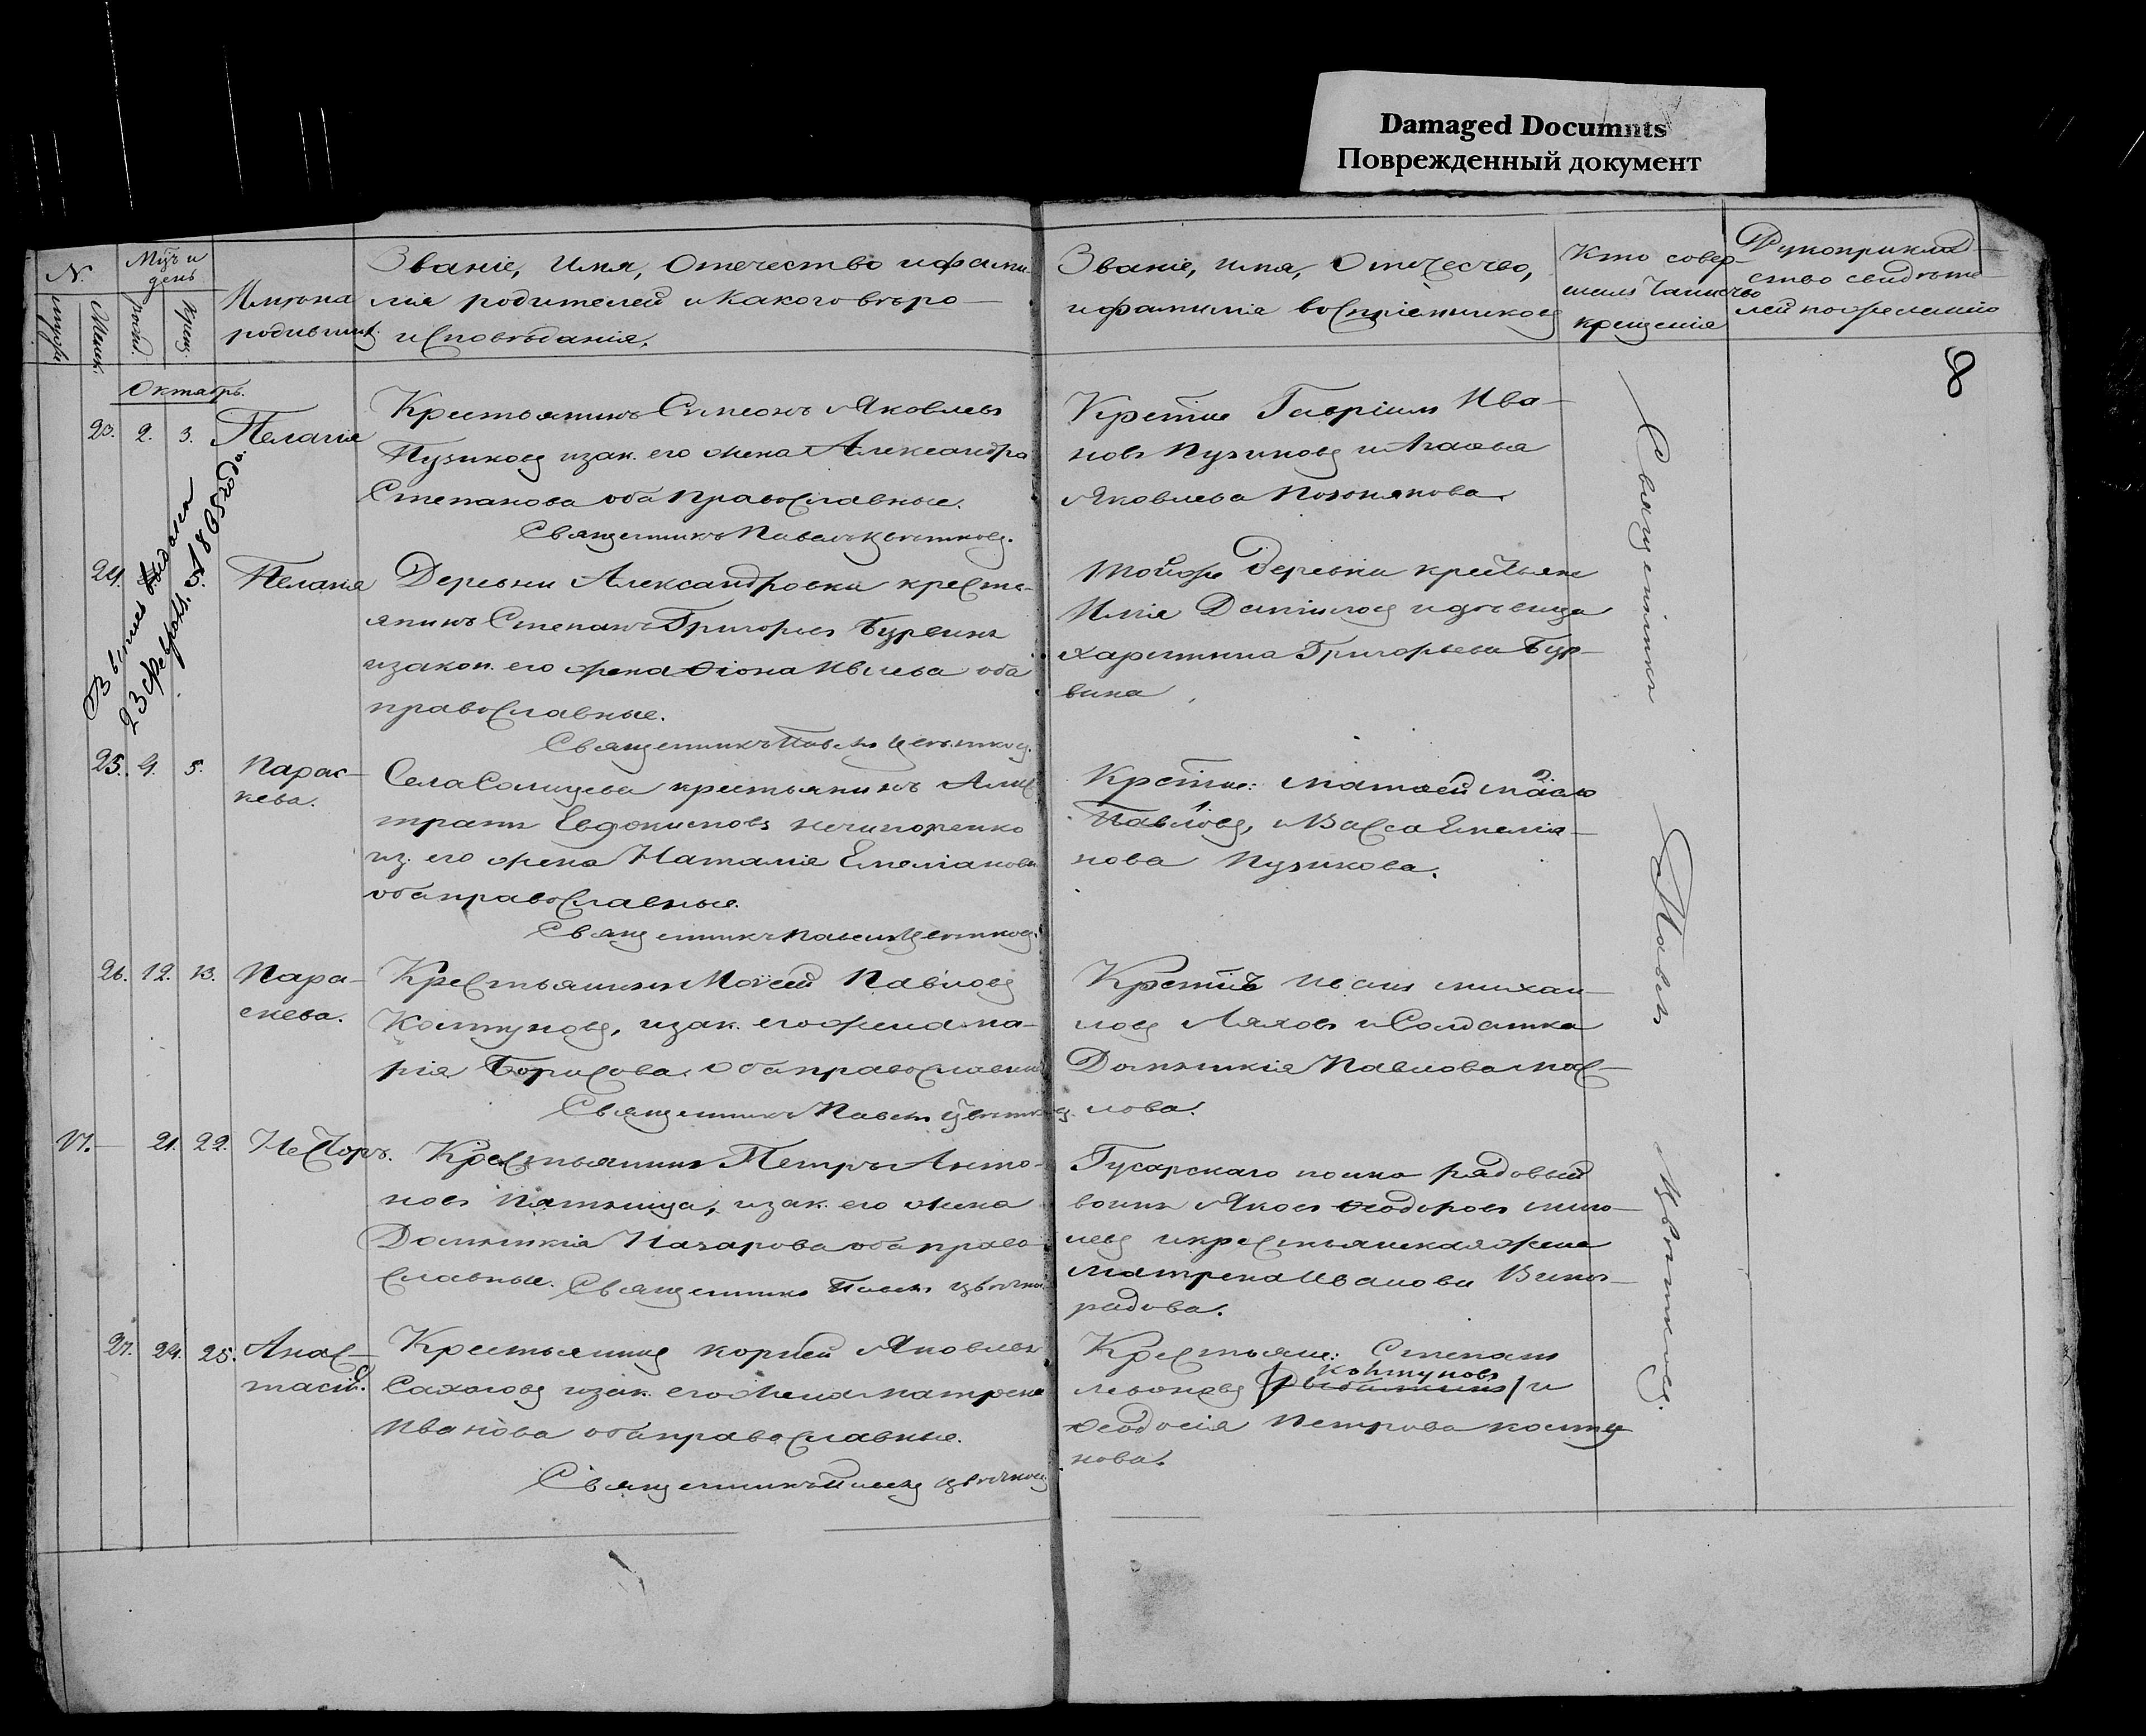 Damaged Documnts
Поврежденный документ
8
N.
Мцъ и
день
Имена
родившихъ.
Званіе, Имя, Отечество и фами
лія родителей и какого въро–
исповѣданія.
Званіе, имя, Отечество,
и фамилія воспріемниковъ
Кто совер–
шалъ Таинство
крещенія
Рукоприклад–
ство свидѣте–
лей по желанію
Октябрь.
23. 2. 3. Пелагія
Крестьянинъ Симеонъ Яковлевъ
Пузиковъ и зак. его жена Александра
Степанова оба православные.
Священникъ Павелъ Цвѣтковъ.
Гавріилъ Ива–
новъ Пузиковъ и Агаѳья
Яковлева
24. Пелагія
23 Февраля 1865 года.
Деревни Александровки кресть–
янинъ Степанъ Григорьевъ Бурвинъ
и закон. его жена Ѳіона оба
православные.
Священникъ Павелъ Цвѣтковъ.
Тойже деревни крестьяне
Илія Даниловъ и дѣвица
Харитина Григорьева Бур–
вина
25. 4. 5. Парас–
кева.
Села Солнцева крестьянинъ
Евдокимовъ Нечипоренко
и з. его жена Наталія Емеліанова
оба православные.
Священникъ Павелъ Цвѣтковъ.
Матѳей
Павловъ, и Васса Емелія–
нова Пузикова.
26. 12. 13. Пара–
скева.
Крестьянинъ Моѵсей Павловъ
Колтуновъ, и зак. его жена Ма–
рія Борисова. Оба православные
Священникъ Павелъ Цвѣтковъ.
Иванъ Михаи–
ловъ Ляховъ и Солдатка
Домникія Павлова Мас–
лова.
17. – 21. 22. Несторъ.
Крестьянинъ Петръ Анто–
новъ Пятница, и зак. его жена
Домникія Назарова оба право–
славные. Священникъ Павелъ Цвѣтков.
Гусарскаго полка рядовый
воинъ Яковъ Ѳеодоровъ
и крестьянская жена
Матрена Иванова Виног–
радова.
27. 24. 25. Анас–
тасія.
Крестьянинъ Корней Яковлевъ
Сахаловъ и зак. его жена Матрена
Иванова оба православные.
Священникъ Павелъ Цвѣтковъ
Крестьяне: Степанъ
Колтуновъ
Леоновъ и
Ѳеодосія Петрова Колту
нова.
Священникъ Павелъ Цвѣтковъ.